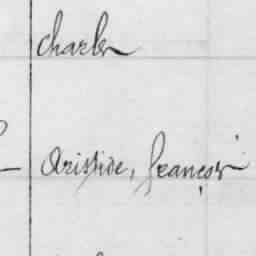 Charles
Aristide, françois